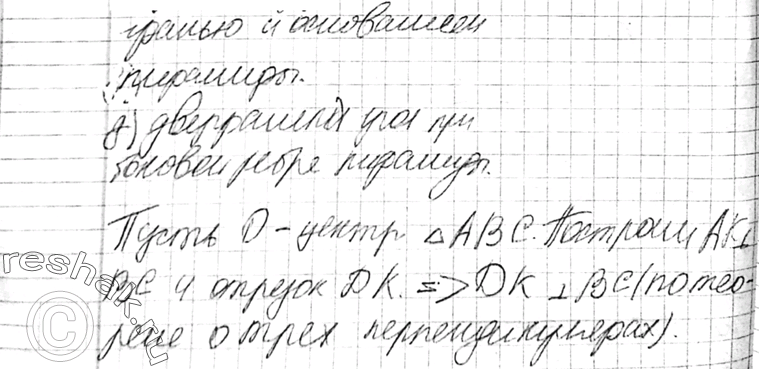 гранью и основанием
пирамиды.
д) двугранный угол при
боковом ребре пирамиды.
Пусть O - центр △ABC. Построим AK⊥
BC и отрезок DK. => DK ⊥ BC (по тео-
реме о трех перпендикулярах).
reshak.ru